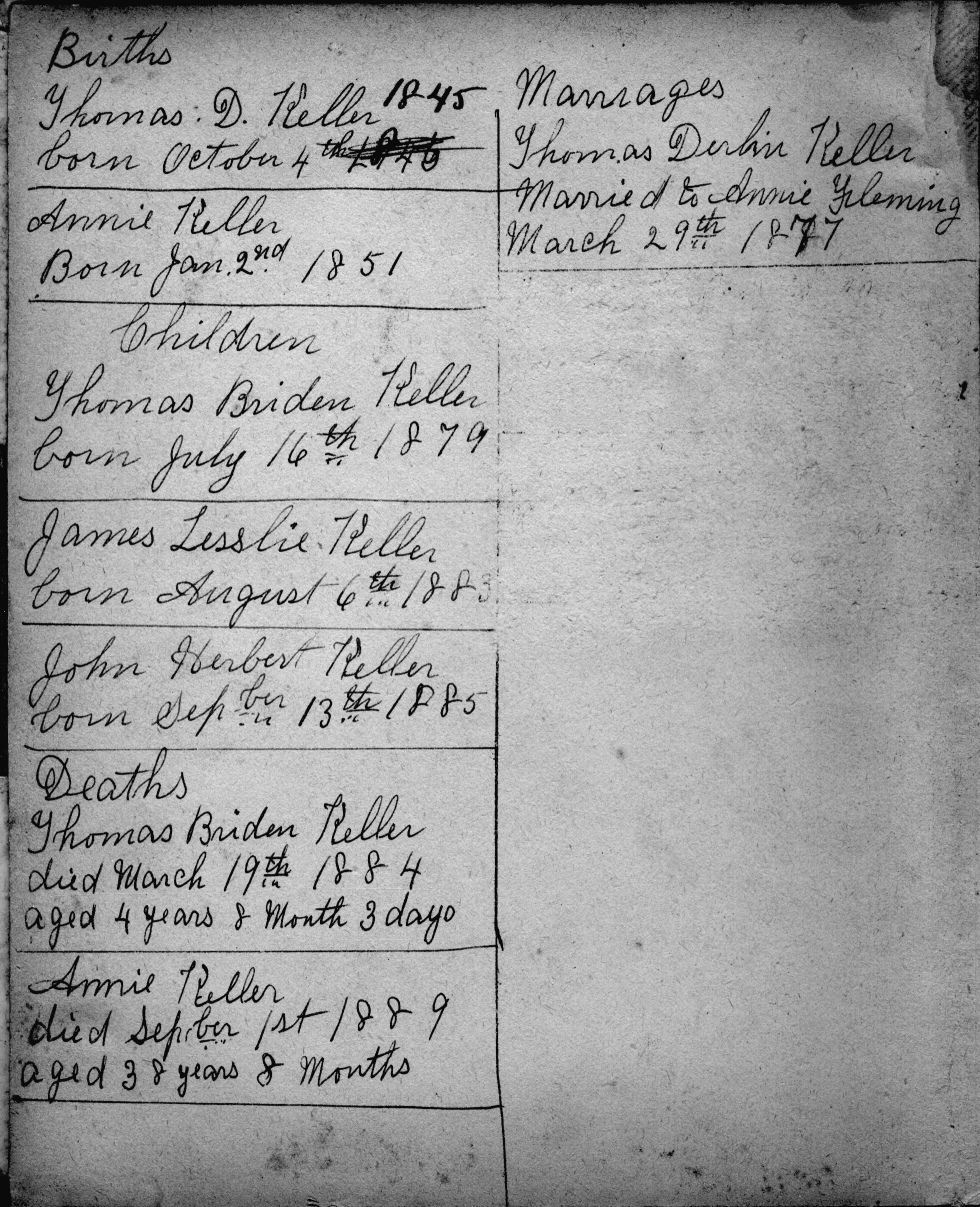 Births
Thomas. D. Keller 1845
born October 4th 1845
Annie Keller
Born Jan. 2nd 1851
Children
Thomas Briden Keller
born July 16th 1879
James Lesslie Keller
born August 6th 1883
John Herbert Keller
born Sepber 13th 1885
Deaths
Thomas Briden Keller
died March 19th 1884
aged 4 years 8 Month 3 days
Annie Keller
died Sepber 1st 1889
aged 38 years 8 Months
Marriages
Thomas Derlin Keller
Married to Annie Fleming
March 29th 1877